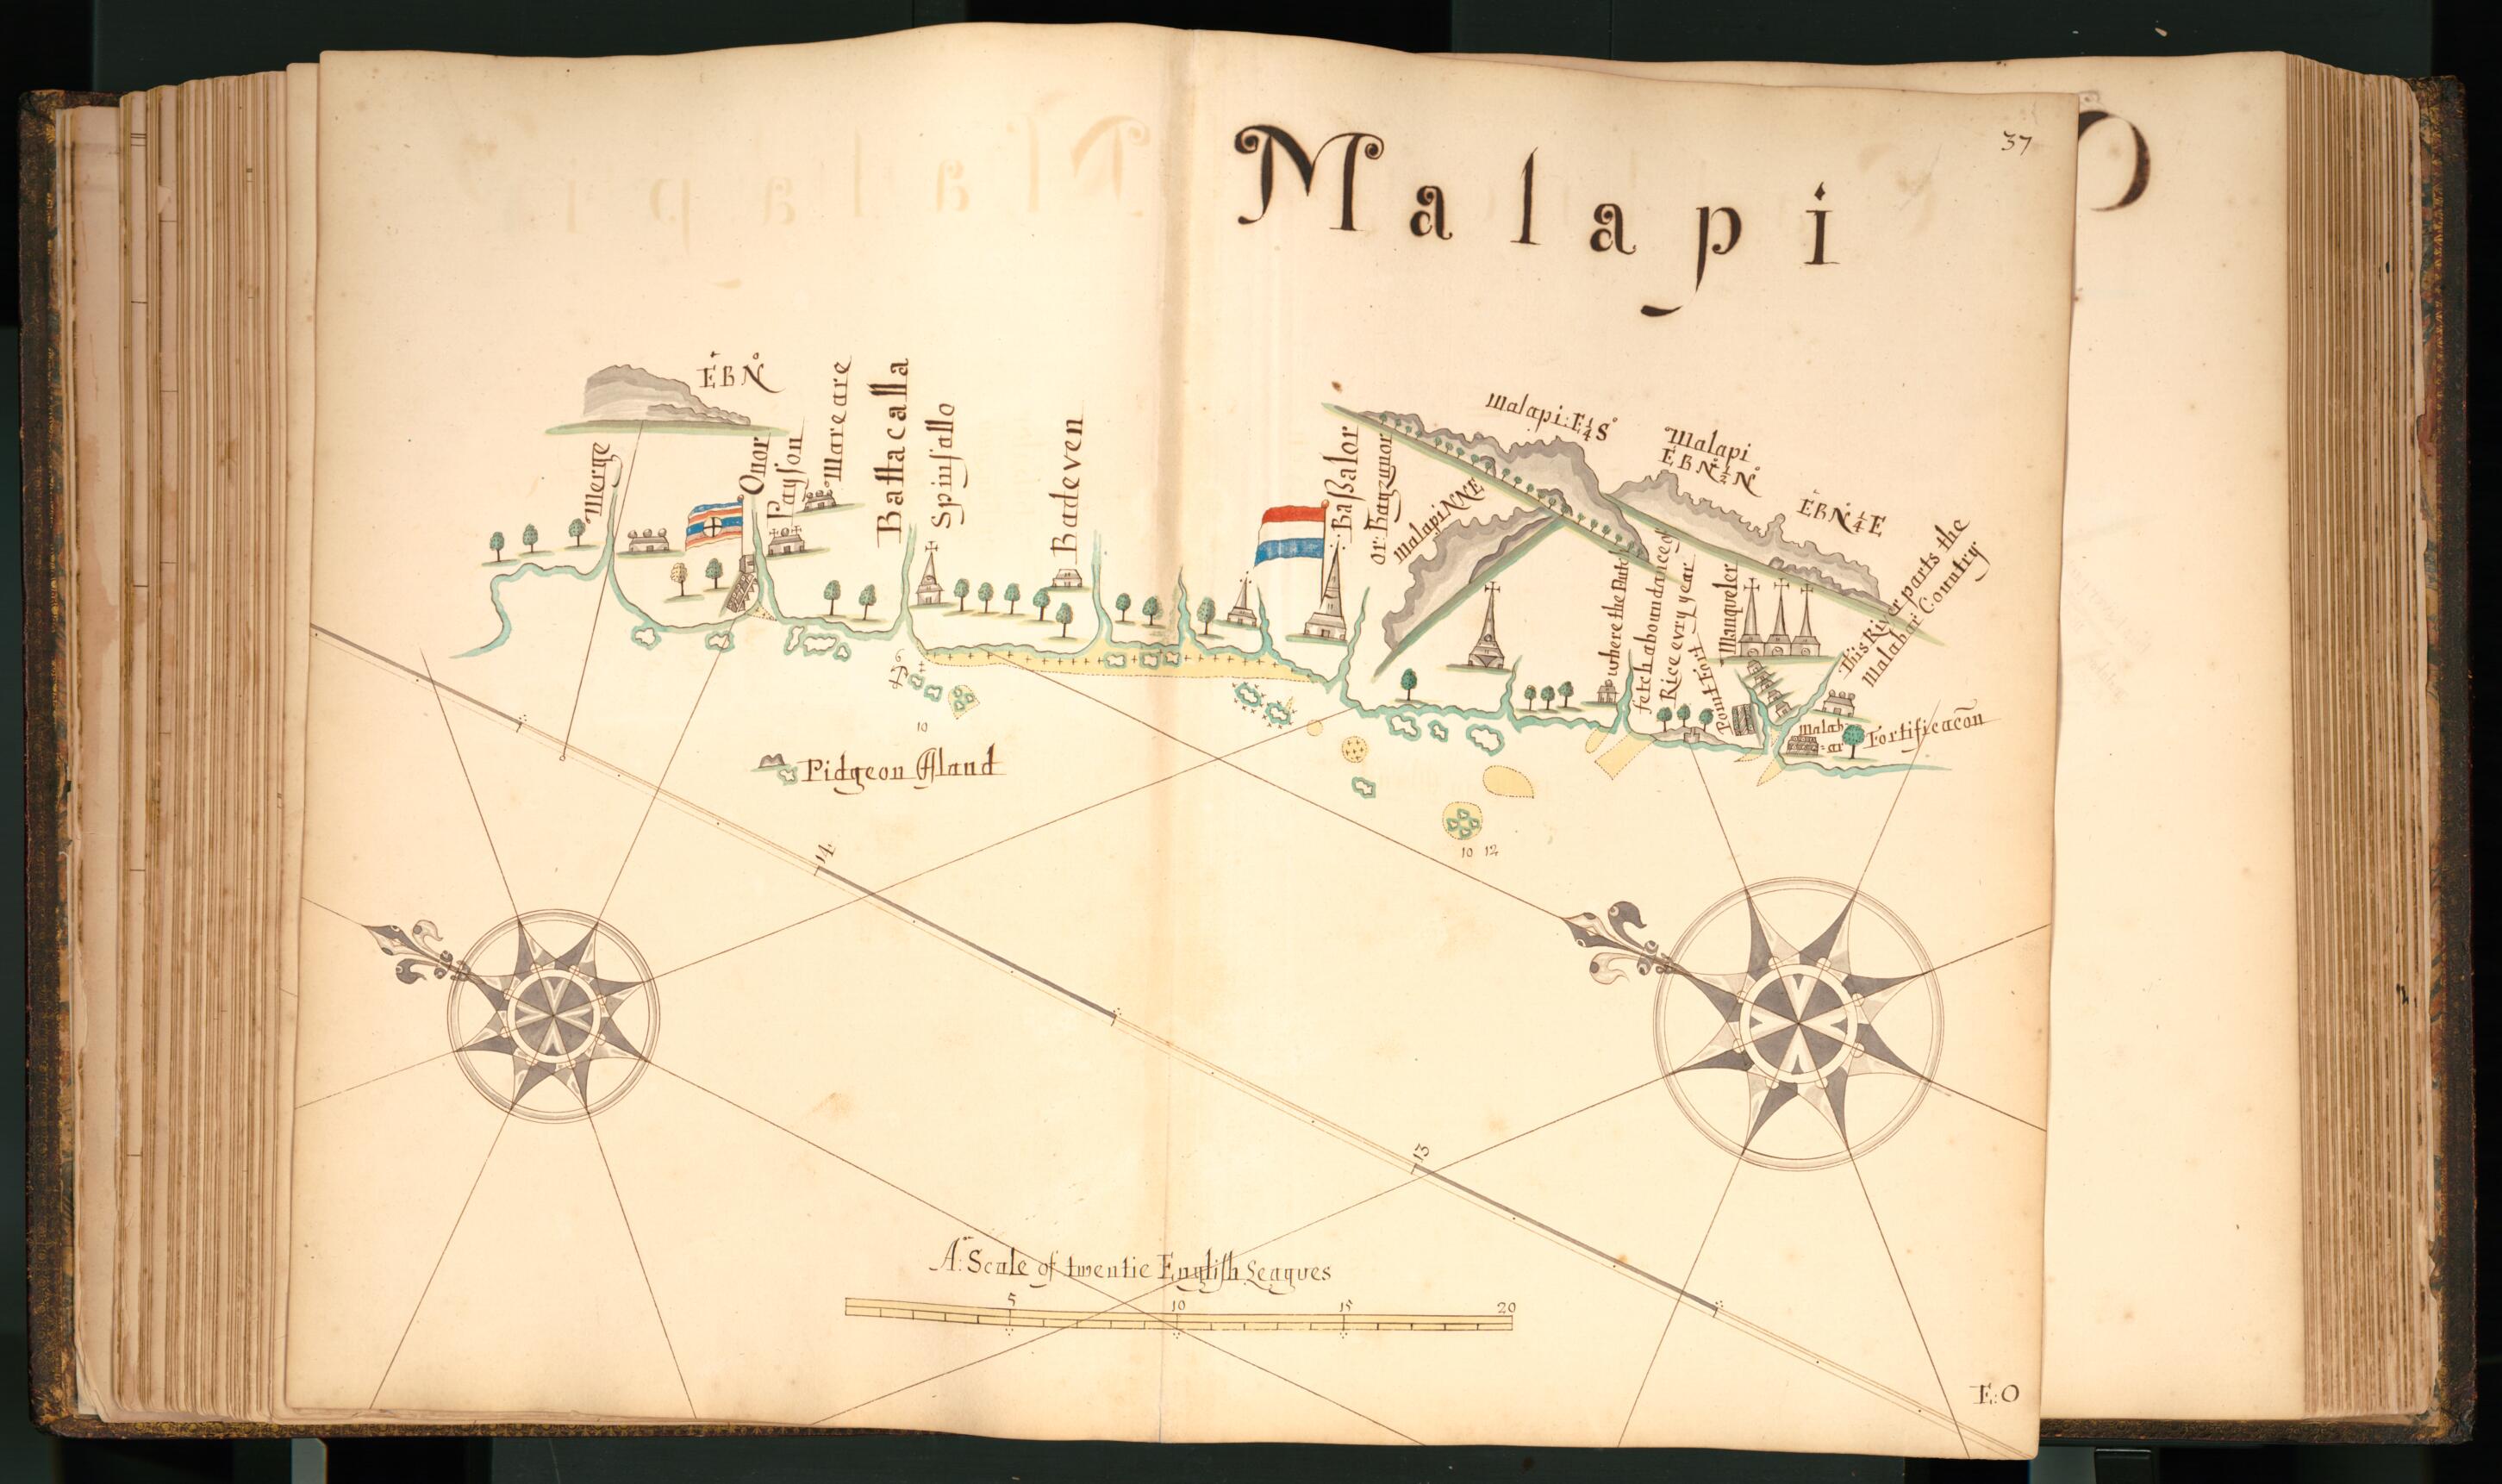 37
Malapi
EBN
Merge
Onor
Paysson
Mareare
Battacalla
Spinsallo
Badeven
Bassalor
or Bagzunor
Malapi NNE
Malapi: E¼S
Malapi
EBN½N
EBN¼E
where the Dutch
fetch aboundance of
Rice evry year
Pont Fort
Manqueler
This River parts the
Malabar Country
Malab
=ar
Fortificacõn
6
10
Pidgeon Island
10 12
14
13
A: Scale of twentie English Leagues
5 10 15 20
E:O